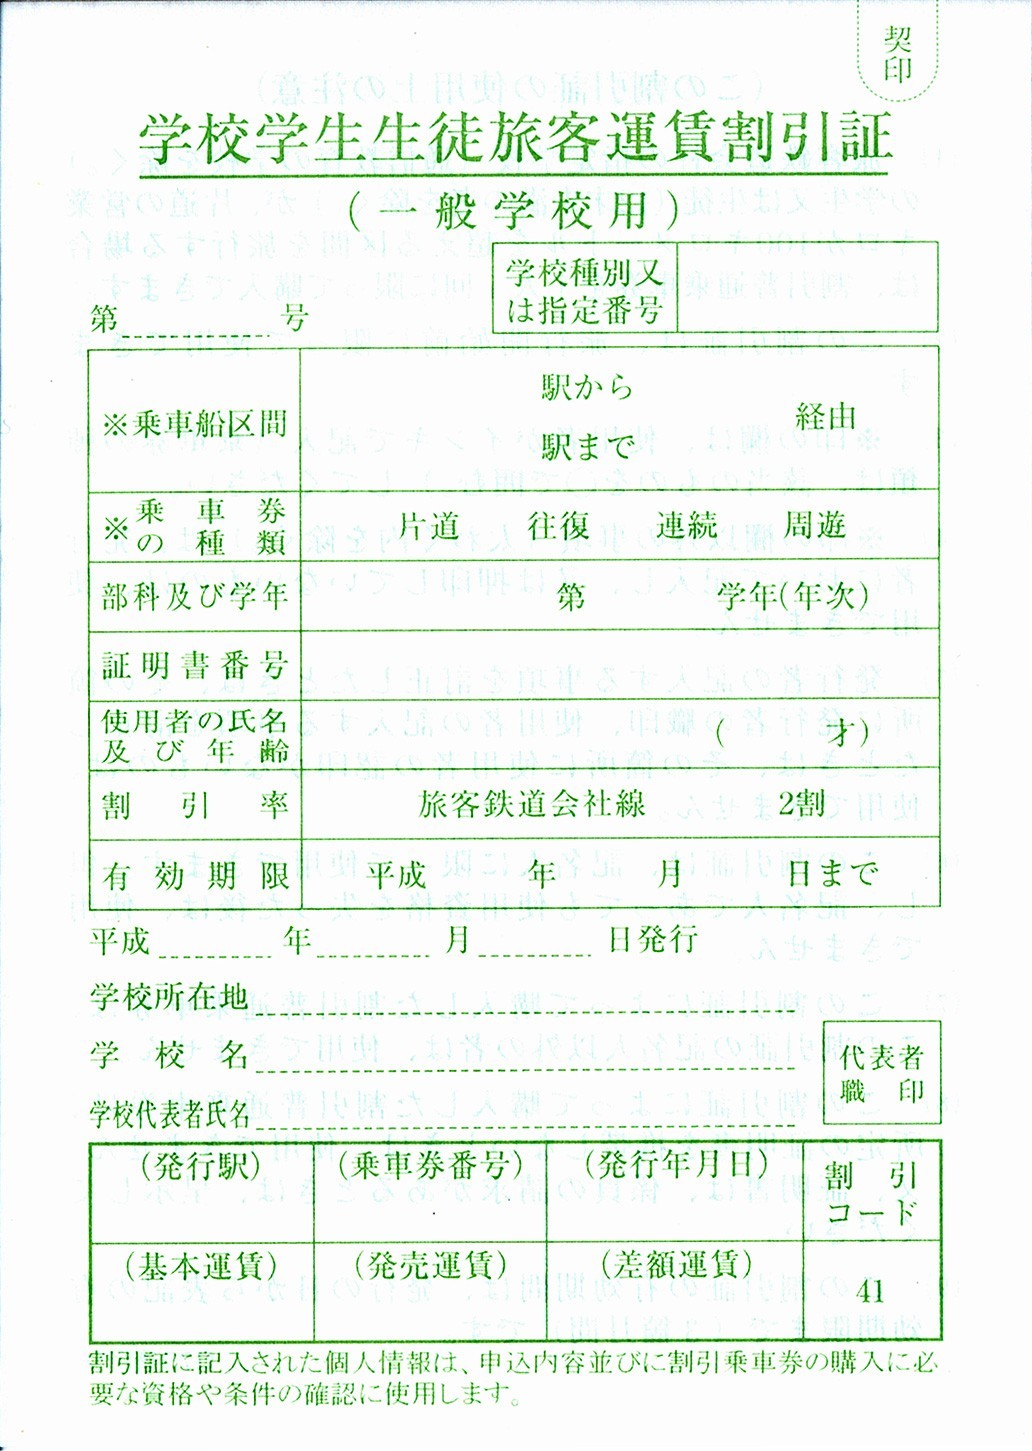 契
印
学校学生生徒旅客運賃割引証
(一般学校用)
学校種別又
は指定番号
第 号
※乗車船区間
駅から
経由
駅まで
※乗車券の種類
片道 往復 連続 周遊
部科及び学年
第 学年(年次)
証明書番号
使用者の氏名
及び年齢
( 才)
割引率
旅客鉄道会社線 2割
有効期限
平成 年 月 日まで
平成 年 月 日発行
学校所在地
学校名
代表者
職印
学校代表者氏名
(発行駅) (乗車券番号) (発行年月日)
割引
コード
(基本運賃) (発売運賃) (差額運賃)
41
割引証に記入された個人情報は、申込内容並びに割引乗車券の購入に必
要な資格や条件の確認に使用します。